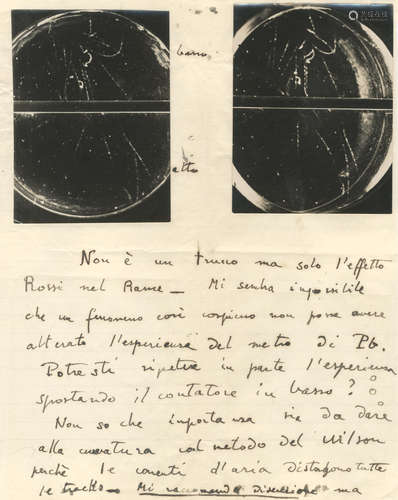 basso
alto
Non è un trucco ma solo l'effetto
Rossi nel Rame – Mi sembra impossibile
che un fenomeno così cospicuo non possa avere
alterato l'esperienza del metro di Pb.
Potresti ripetere in parte l'esperienza
spostando il contatore in basso?
Non so che importanza sia da dare
alla curvatura col metodo del Wilson
perchè le correnti d'aria distorgono tutte
le tracks – Mi raccomando discrezione ma